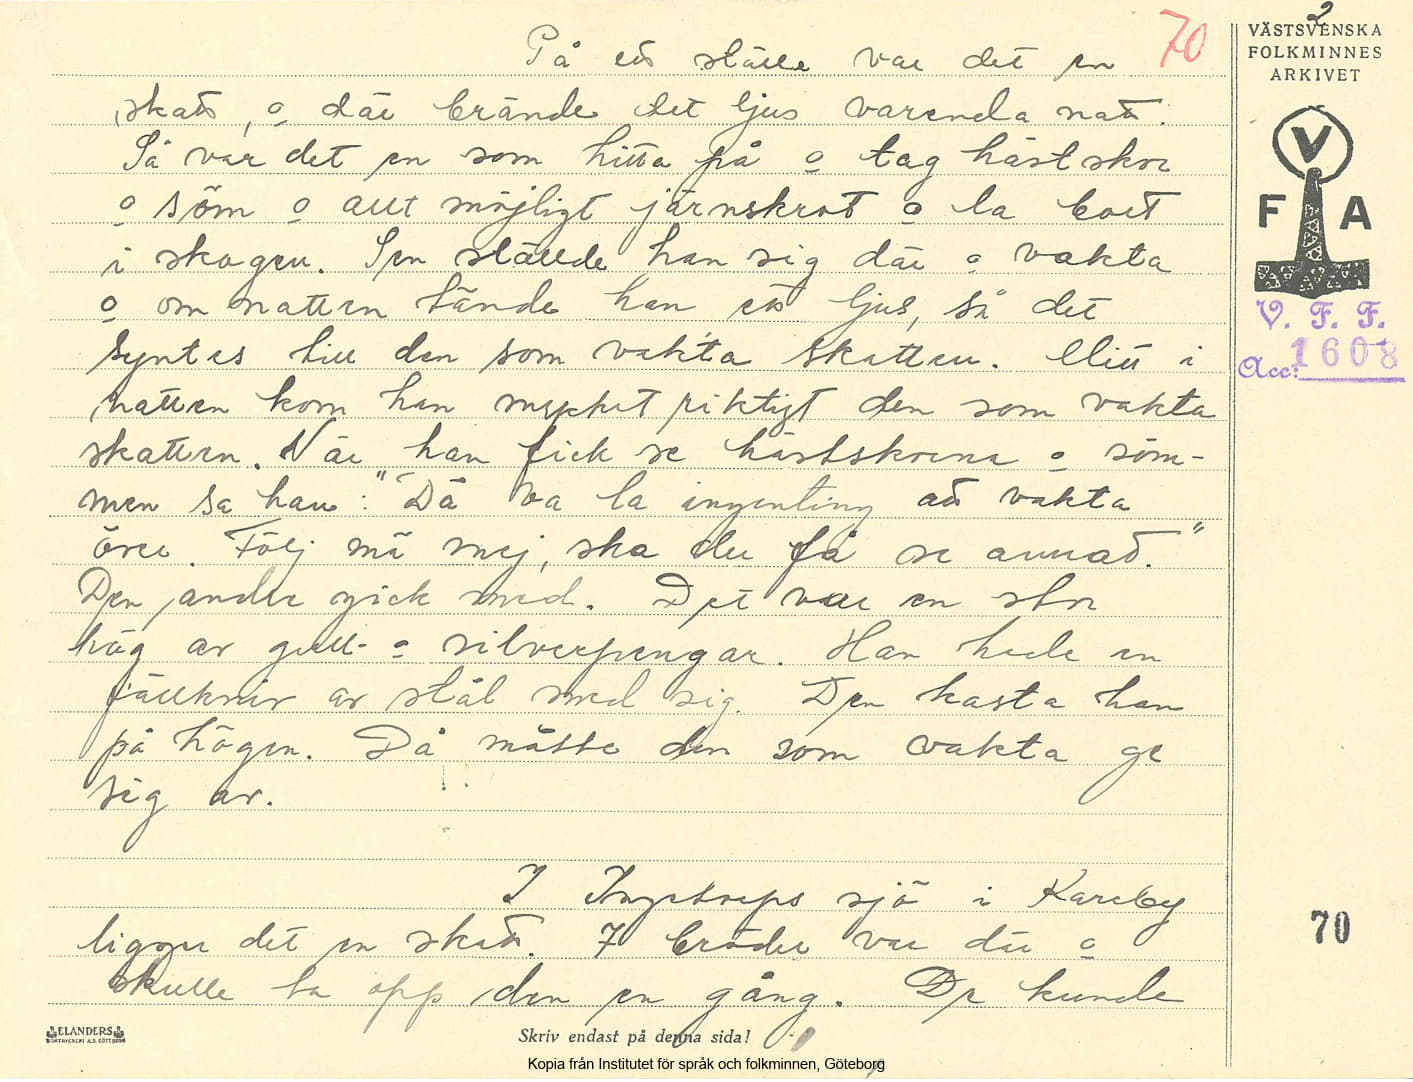 2
70
VÄSTSVENSKA
FOLKMINNES
ARKIVET
V
F A
V. F. F.
Acc: 1608
På ett ställe var det en
skatt, o där brände det ljus varenda natt.
Så var det en som hitta på o tag hästskor
o söm o allt möjligt järnskrot o la bort
i skogen. Sen ställde han sig där o vakta
o om natten tände han ett ljus, så det
syntes till den som vakta skatten. Mitt i
natten kom han mycket riktigt den som vakta
skatten. När han fick se hästskorna o söm-
men sa han: "Dä va la ingenting att vakta
över. Följ mä mej, ska du få se annat."
Den andre gick med. Det var en stor
hög av gull- o silverpengar. Han hade en
fällkniv av stål med sig. Den kasta han
på högen. Då måste den som vakta ge
sig av.
I Ingetorps sjö i Kareby
ligger det en skatt. 7 bröder var där o
skulle ta opp den en gång. De kunde
70
ELANDERS
BOKTRYCKERI A.B. GÖTEBORG
Skriv endast på denna sida!
Kopia från Institutet för språk och folkminnen, Göteborg